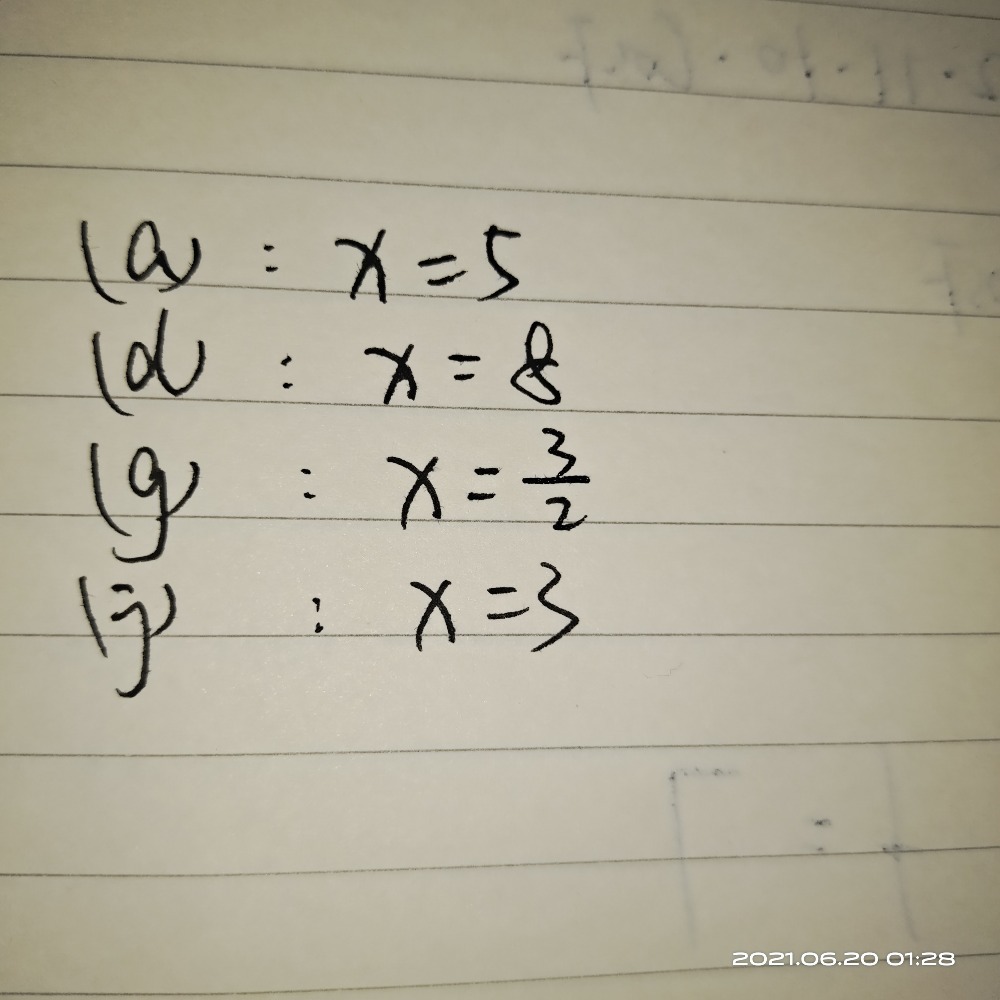 (a) : x = 5
(d) : x = 8
(g) : x = 3/2
(j) : x = 3
2021.06.20 01:28